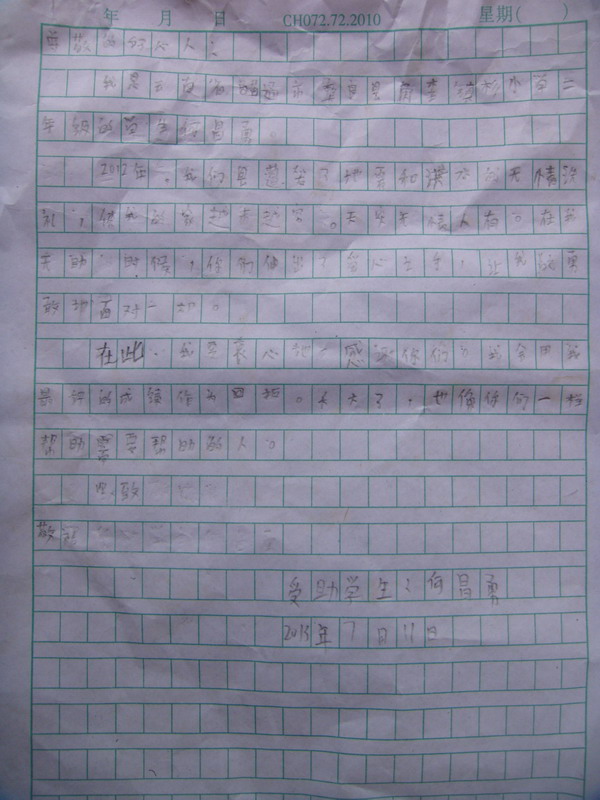 年 月 日 CH072.72.2010 星期( )
尊敬的好心人:
我是云南省昭通市 县 镇 小学二
年级的学生何昌勇。
2012年,我们 遭 了地震和洪水的无情
,使我的家越来越穷。天灾无情人有。在我
无助 时候,你们伸出了 心 手,让我 勇
敢地面对一切。
在此,我 衷心地 感谢你们。我会用我
最 的成绩作为回报。长大了,也像你们一样
帮助需要帮助的人。
此致
敬礼
受助学生:何昌勇
2013年7月11日